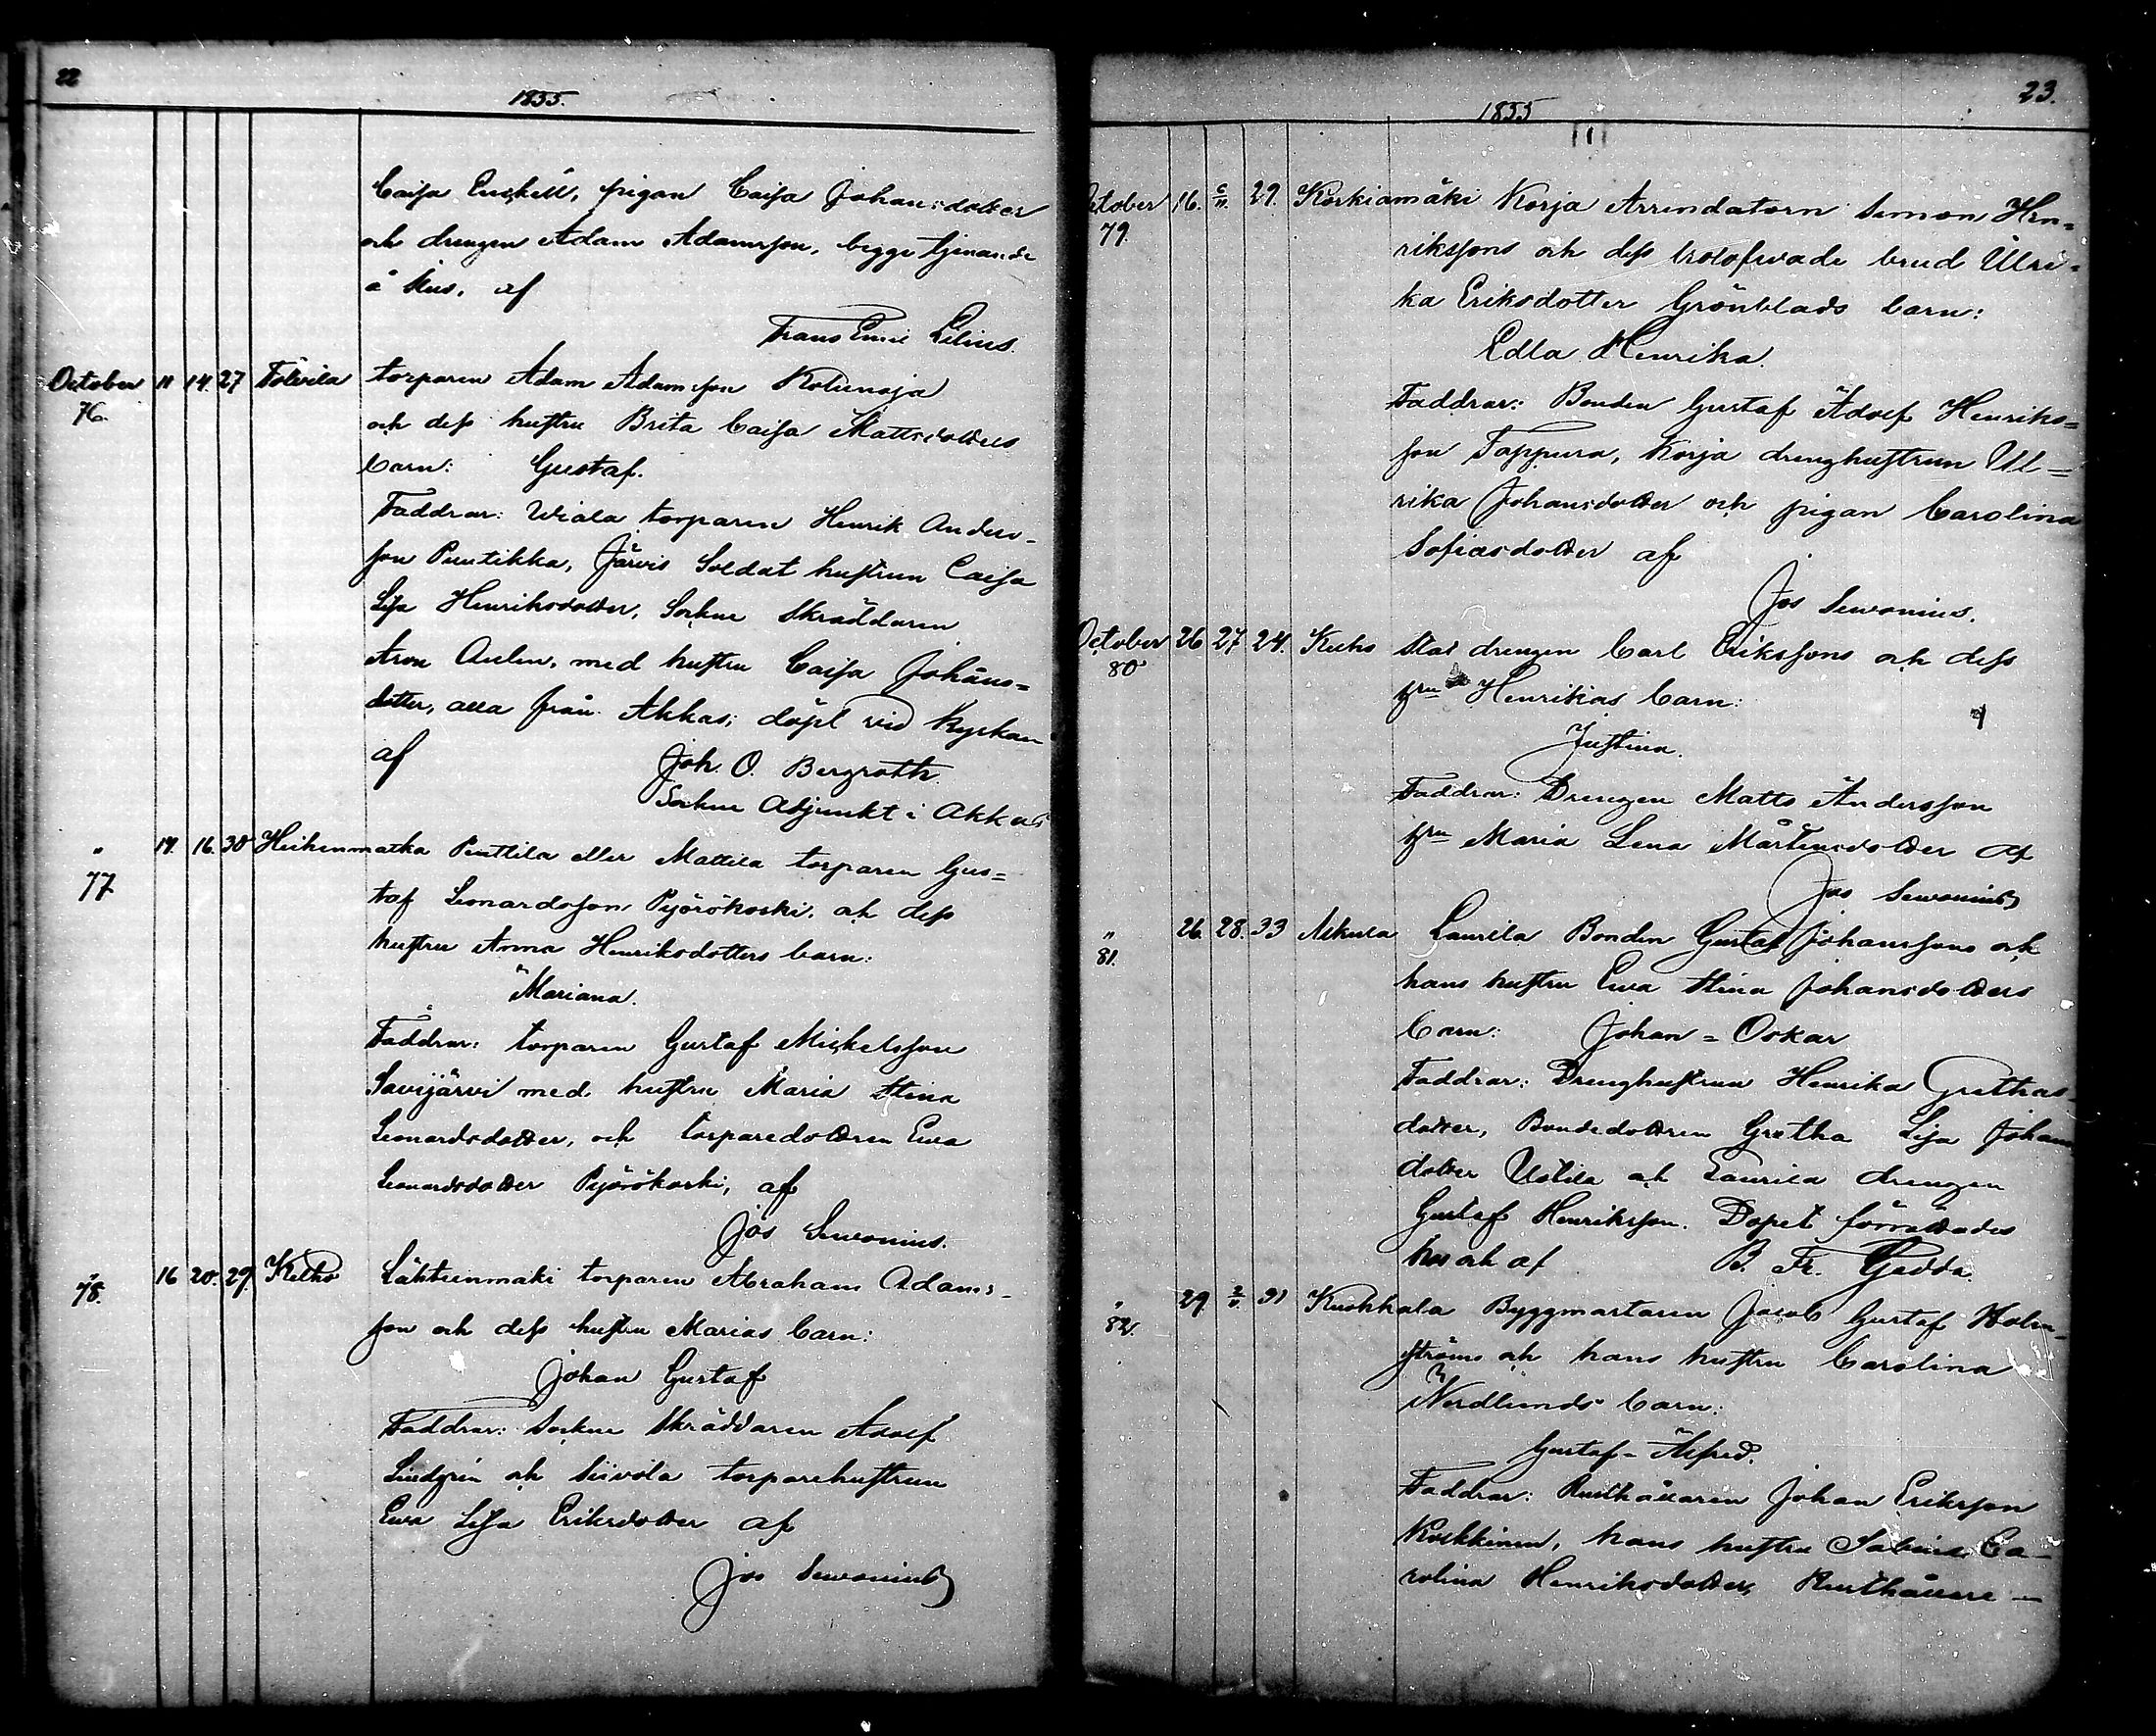 22
1855.
Caisa Enckell, pigan Caisa Johansdotter
och drengen Adam Adamsson, begge tjenande
å Hus, af
Frans Emil Lilius.
October 11 14. 27 Tolvila torparen Adam Adamsson Kolunoja
76. och dess hustru Brita Caisa Mattsdotters
barn: Gustaf.
Faddrar: Wiala torparen Henrik Anders-
son Puntikka, Järvis Soldat hustrun Caisa
Lisa Henriksdotter, Sockne Skräddaren
Aron Aulin, med hustru Caisa Johans=
dotter, alla från Akkas; döpt vid Kyrkan
af Joh. O. Bergroth.
Sockne Adjunkt i Akkas
" 14. 16. 30 Heikenmatka Penttila eller Mattila torparen Gus=
77 taf Leonardsson Pyörökoski, och dess
hustru Anna Henriksdotters barn:
Mariana.
Faddrar: torparen Gustaf Mickelsson
Savijärvi med hustru Maria Stina
Leonardsdotter, och torparedottren Ewa
Leonardsdotter Pyörökoski, af
Jos Sewonius.
" 16 20. 29. Kelho Lähteenmäki torparen Abraham Adams-
78. son och dess hustru Marias barn:
Johan Gustaf
Faddrar: Sockne Skräddaren Adolf
Lindgrén och Siivola torparehustrun
Ewa Lisa Eriksdotter af
Jos Sewonius
23.
1855
October 16. 6/11. 29. Korkiamäki Korja Arrendatorn Simon Hen=
79. rikssons och dess trolofwade brud Ulri=
ka Eriksdotter Grönblads barn:
Edla Henrika.
Faddrar: Bonden Gustaf Adolf Henriks=
son Tappura, Korja drenghustrun Ul=
rika Johansdotter och pigan Carolina
Sofiasdotter af
Jos Sewonius.
October 26 27 24. Kuho drengen Carl Erikssons och dess
80 hru Henrikas barn:
Justina.
Faddrar: Drengen Matts Andersson
hru Maria Lena Mårtensdotter af
Jos Sewonius
" 26. 28. 33 Laurila Bonden Gustaf Johanssons och
81. hans hustru Ewa Stina Johansdotters
barn: Johan = Oskar
Faddrar: Drenghustrun Henrika Grethas
dotter, Bondedottren Gretha Lisa Johans
dotter Uotila och Laurila drengen
Gustaf Henriksson. Dopet förrättades
hos och af B. Fr. Gadda.
" 29 31 Kuokkala Byggmästaren Jacob Gustaf Holm-
82. ströms och hans hustru Carolina
Nordlunds barn:
Gustaf = Alfred.
Faddrar: Rusthållaren Johan Eriksson
Kockkinen, hans hustru Sabina Ca-
rolina Henriksdotter, Rusthållare -